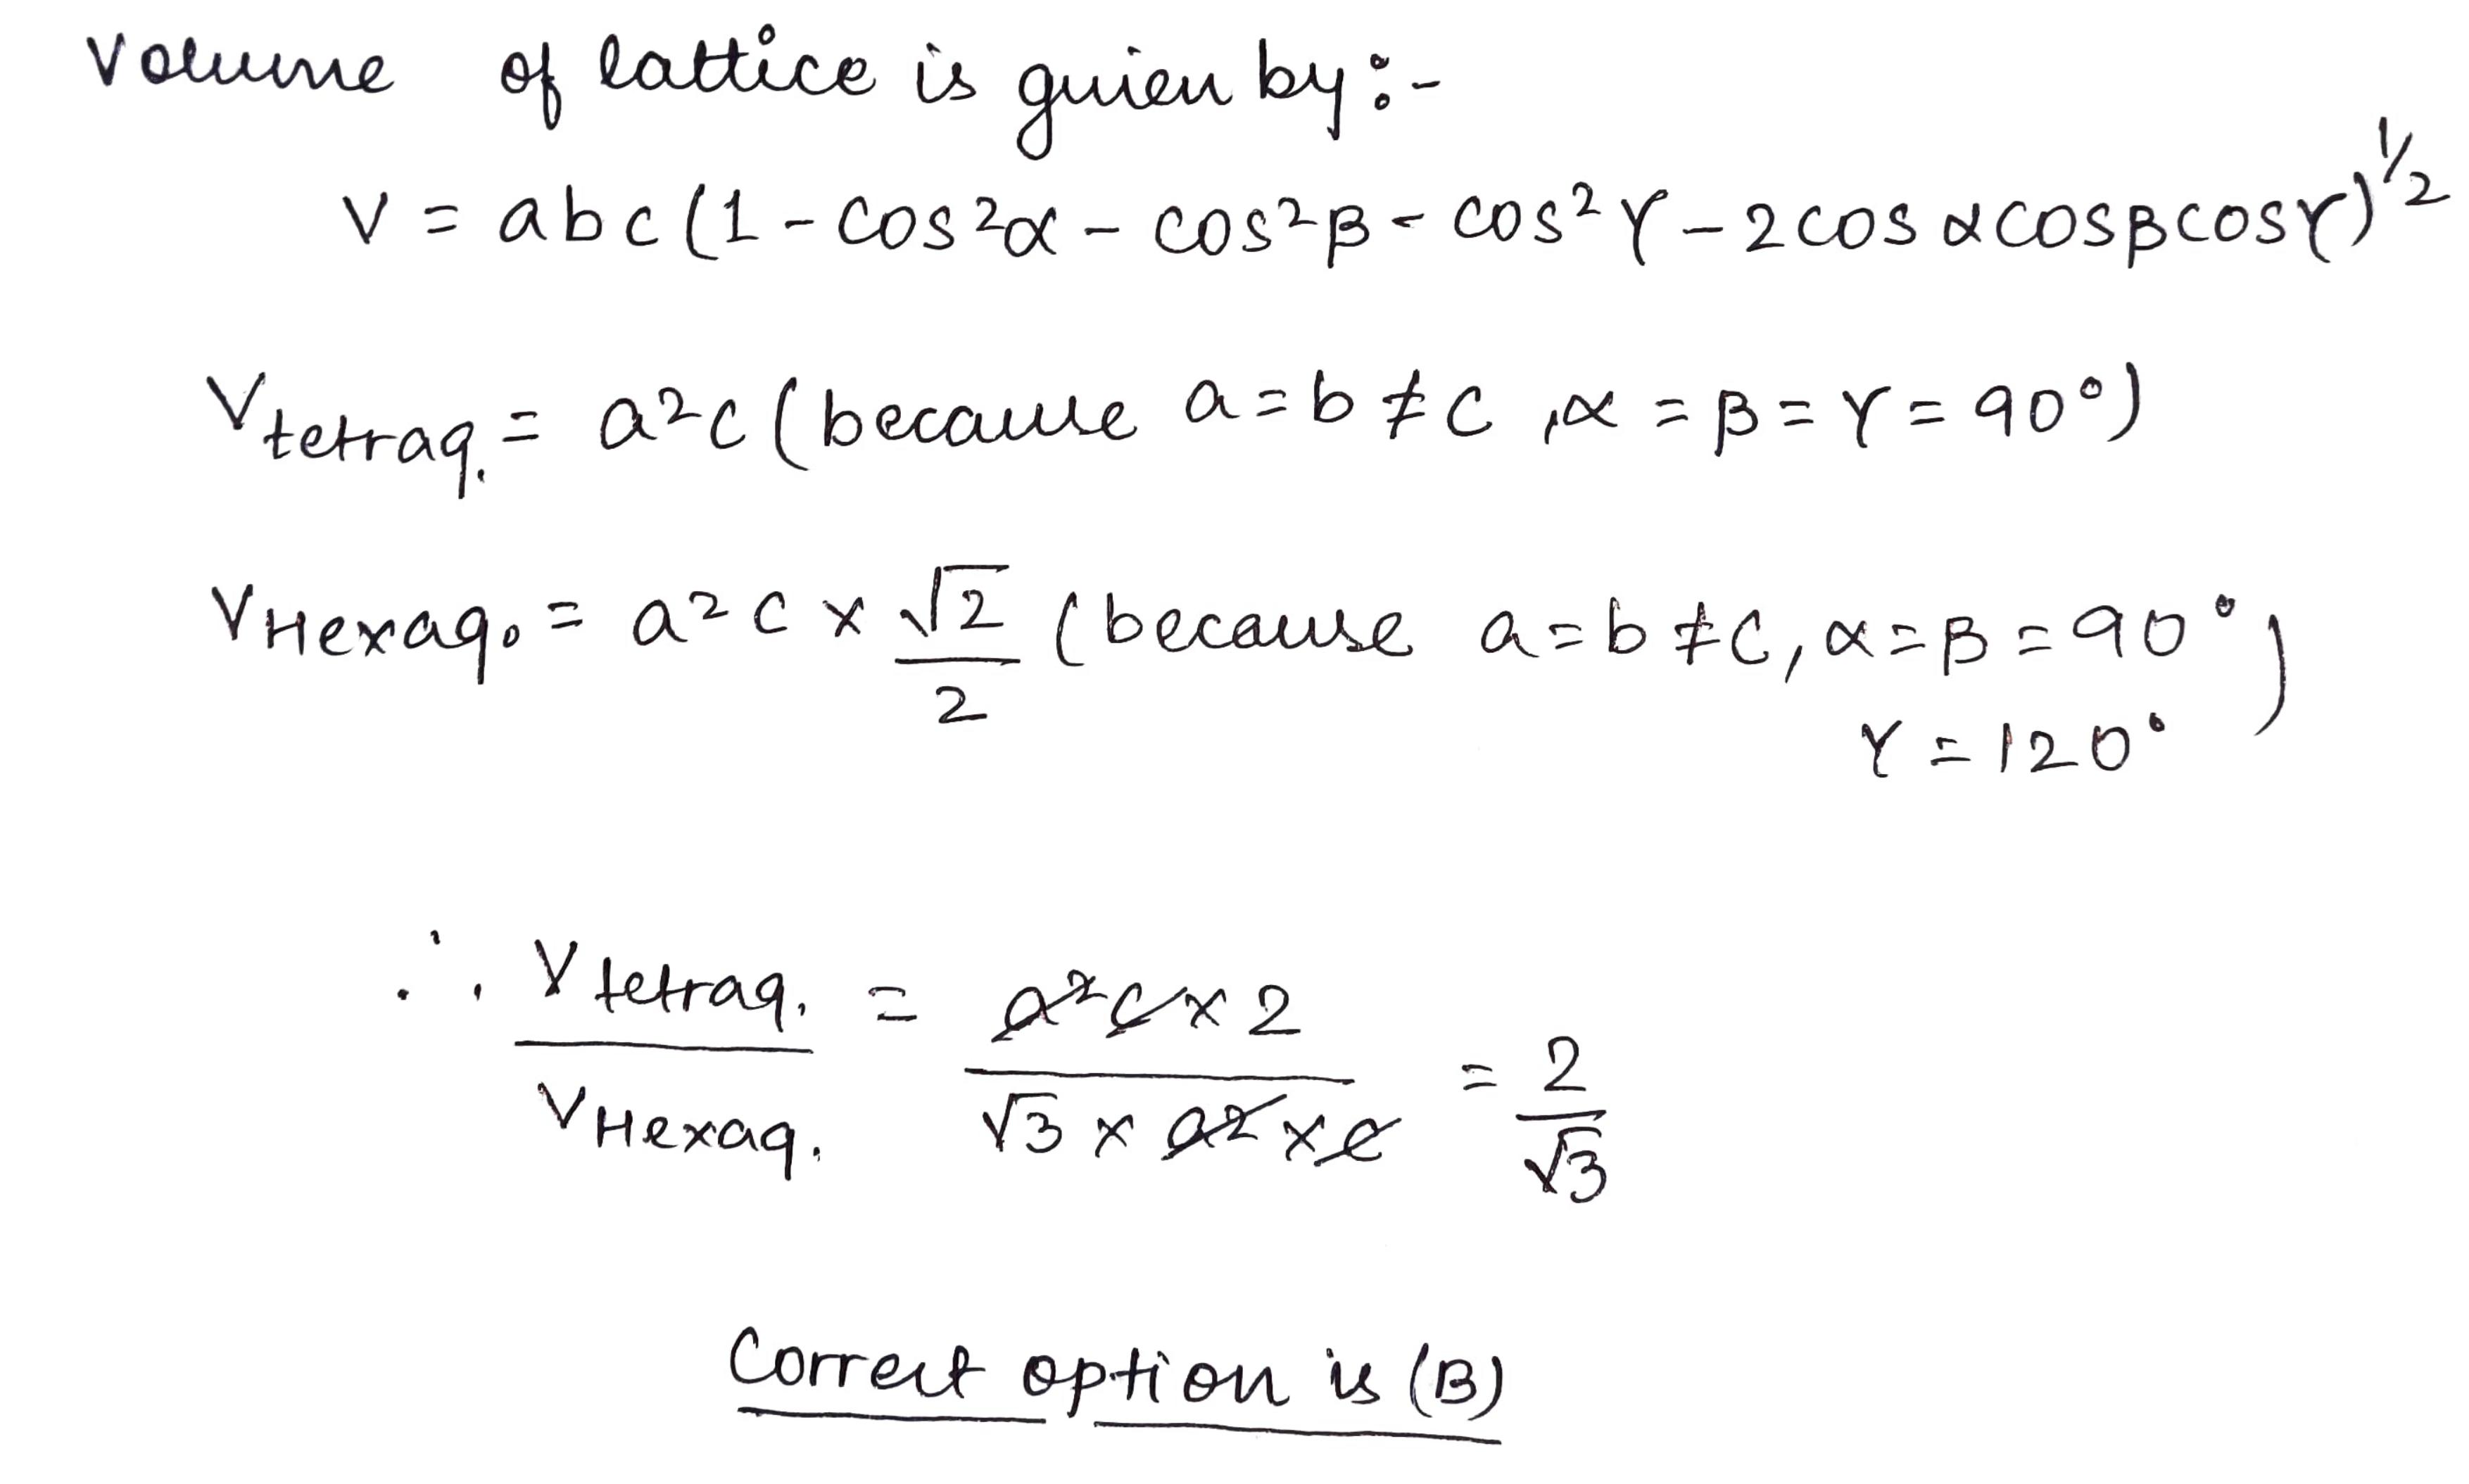 Volume of lattice is given by:-
V = abc(1 - cos²α - cos²β - cos²γ - 2cosαcosβcosγ)^1/2
Vtetrag. = a²c (because a = b ≠ c, α = β = γ = 90°)
VHexag. = a²c × √2/2 (because a = b ≠ c, α = β = 90°,
γ = 120°)
∴ Vtetrag./VHexag. = a²c × 2/√3 × a² × c = 2/√3
Correct option is (B)